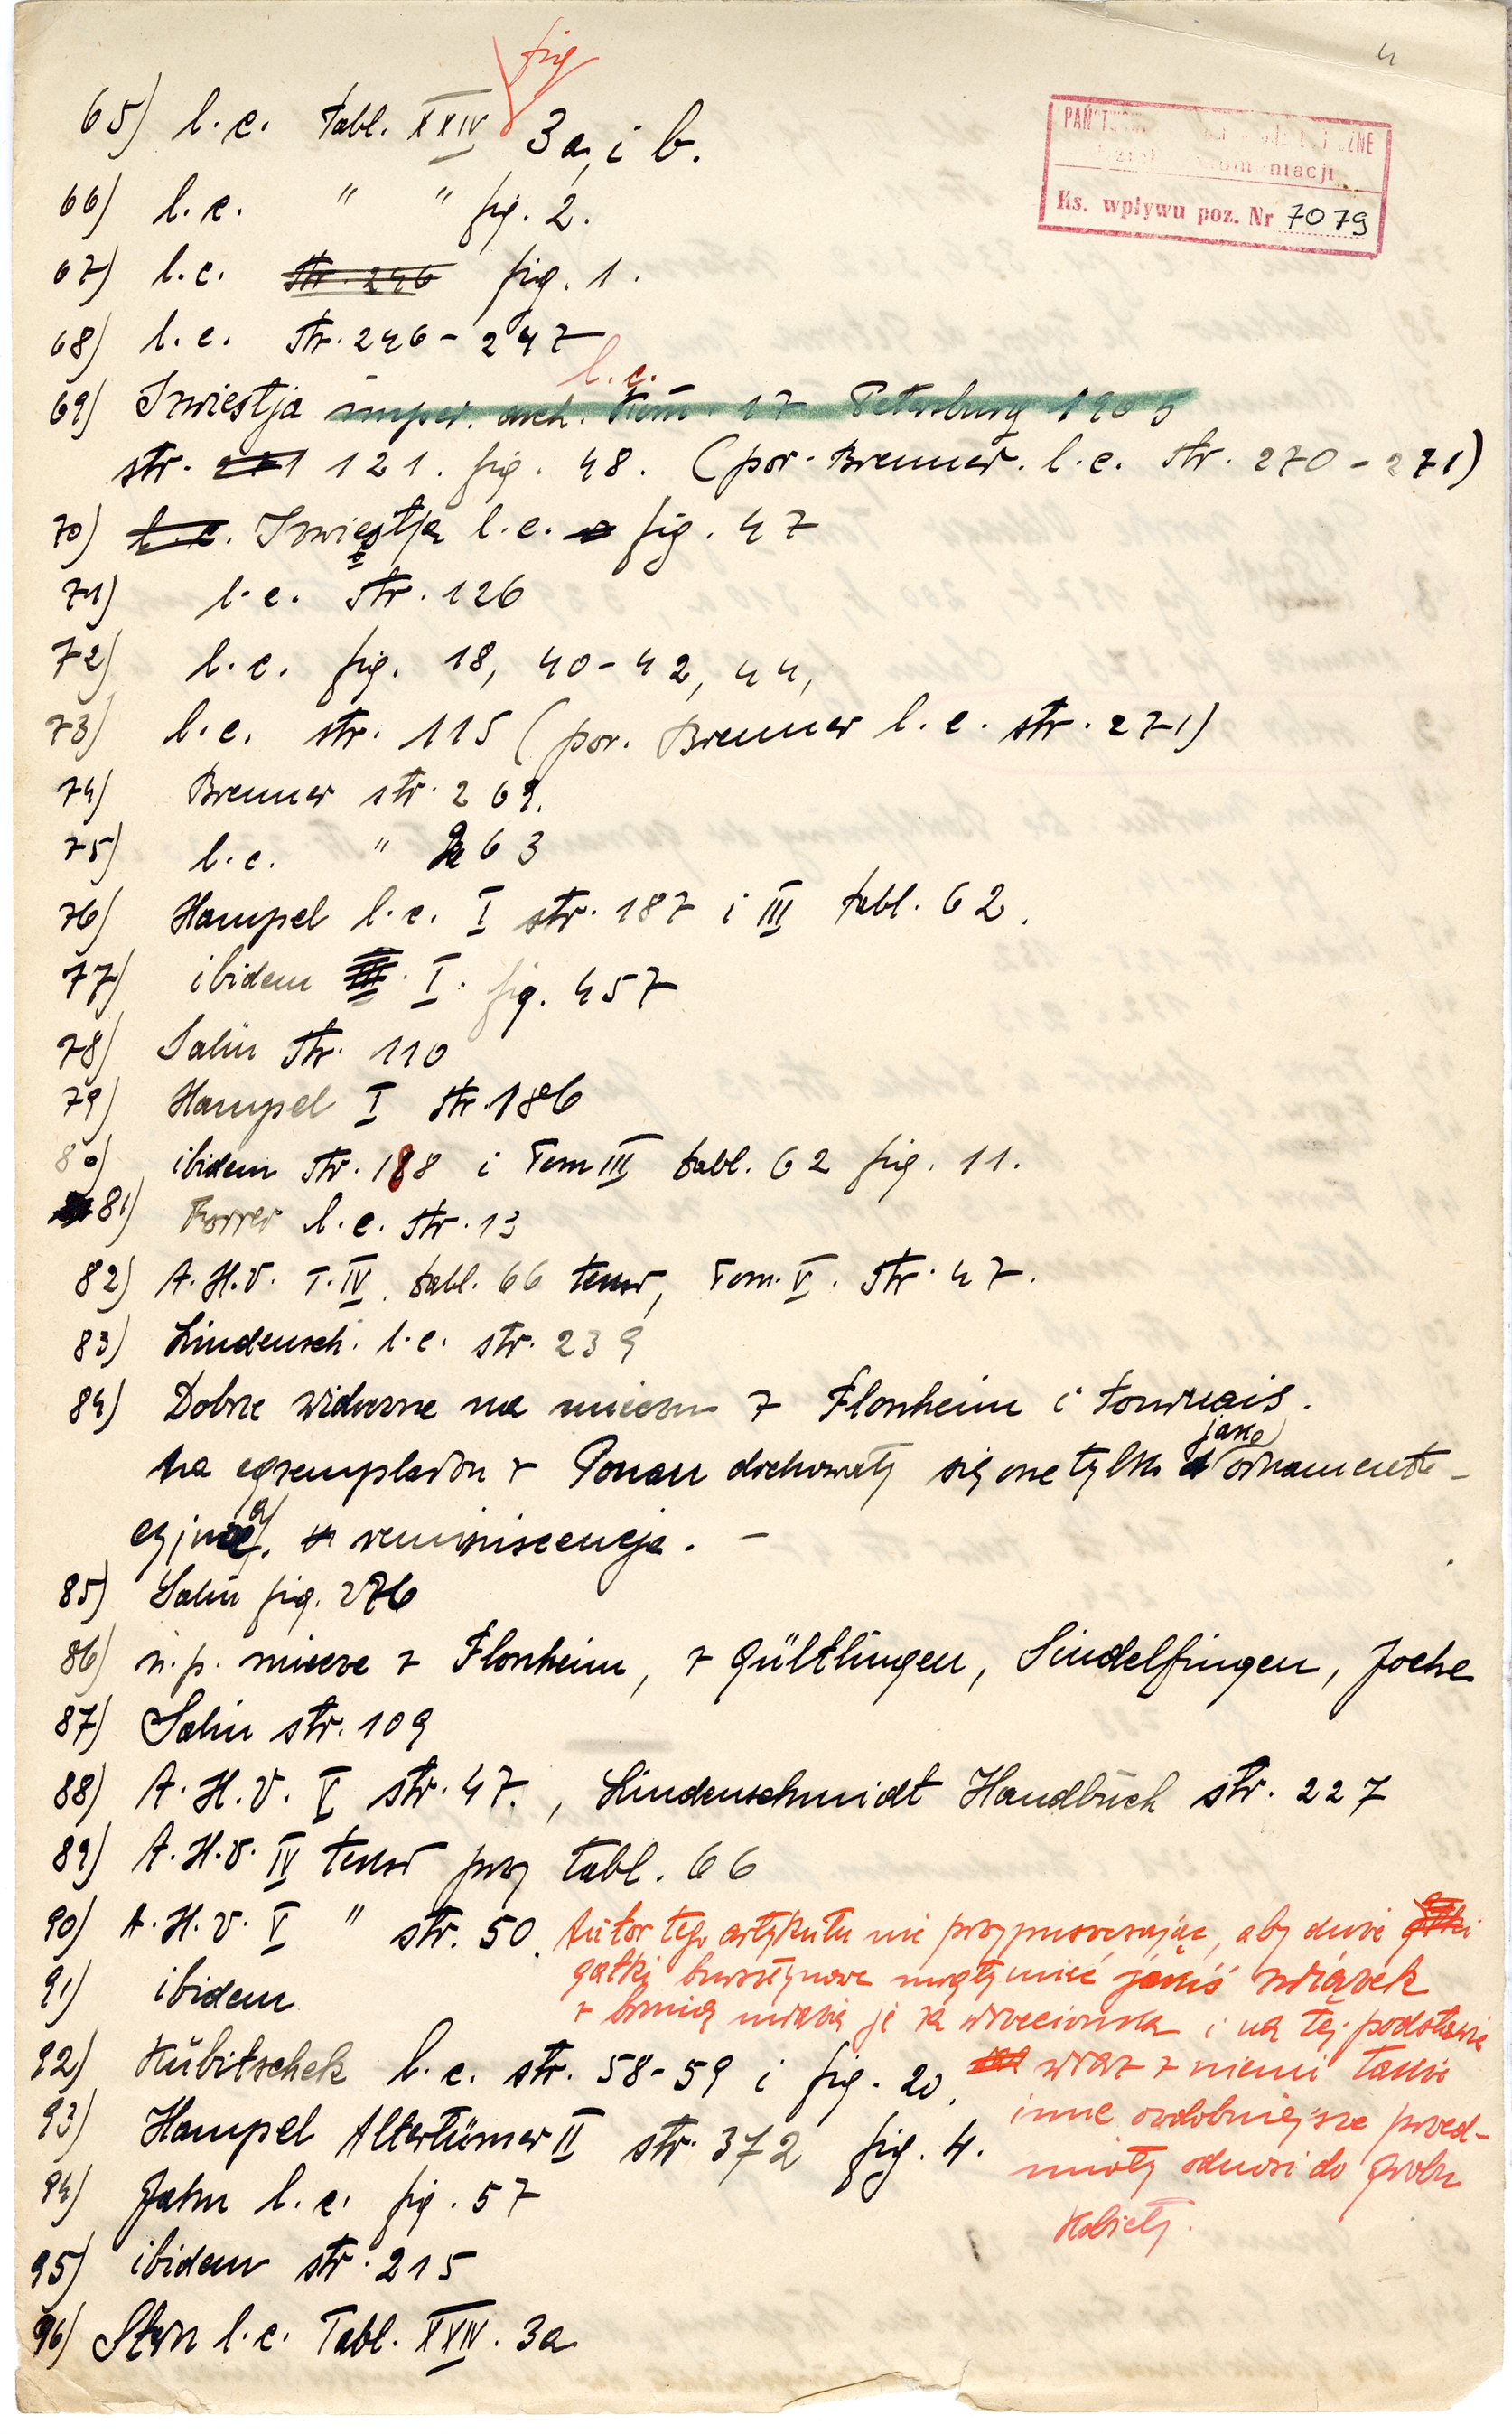 4
fig
65) l.c. tabl. XXIV 3a, i b.
PAŃSTW
Ks. wpływu poz. Nr 7079
66) l.c. " " fig. 2.
67) l.c. str. 246 fig. 1.
68) l.c. str. 246-247
l.c.
69) Izwiestja imper. arch. Kom. 17 Petersburg 1905
str. 121. fig. 48. (por. Brenner. l.c. str. 270-271)
70) l.c. Izwiestja l.c. fig. 47
71) l.c. str. 126
72) l.c. fig. 18, 40-42, 44,
73) l.c. str. 115 (por. Brenner l.c. str. 271)
74) Brenner str. 269.
75) l.c. " 263
76) Hampel l.c. I str. 187 i III tabl. 62.
77) ibidem III. I. fig. 457
78) Salin str. 110
79) Hampel I str. 186
80) ibidem str. 188 i Tom III tabl. 62 fig. 11.
81) Forrer l.c. str. 13
82) A.H.V. T. IV. tabl. 66 tekst, Tom. V. str. 47.
83) Lindensch. l.c. str. 239
84) Dobrze widoczne na mieczu z Flonheim i Tournais.
jako
na egzemplarzu z Pouan dochowały się one tylko ornamenta-
cyjną reminiscencja. –
85) Salin fig. 276
86) n.p. miecze z Flonheim, z Gültlingen, Sindelfingen,
87) Salin str. 109
88) A.H.V. V str. 47., Lindenschmidt Handbuch str. 227
89) A.H.V. IV tekst przy tabl. 66
90) A.H.V. V " str. 50.
Autor tego artykułu nie przypuszczając, aby duże
gałki bursztynowe mogły mieć jakiś związek
z bronią uważa je za wrzeciona i na tej podstawie
wraz z niemi także
inne ozdobniejsze przed-
mioty odnosi do grobu
kobiety.
91) ibidem
92) Kubitschek l.c. str. 58-59 i fig. 20.
93) Hampel Altertümer II str. 372 fig. 4.
94) Jahn l.c. fig. 57
95) ibidem str. 215
96) l.c. Tabl. XXIV. 3a